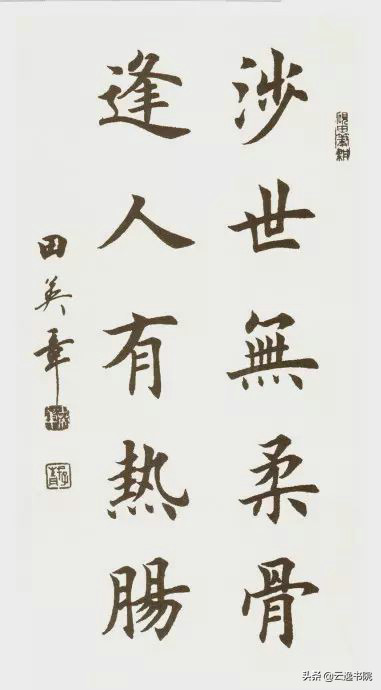 涉世無柔骨
逢人有热腸
田英章
头条 @云逸书院